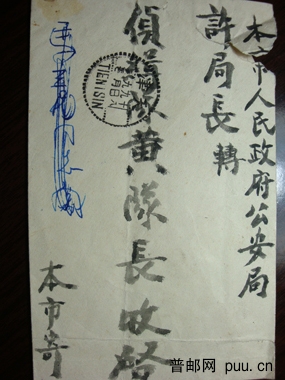 本市人民政府公安局
許局長轉
偵緝隊黃隊長收啓
本市寄
TIENTSIN
普邮网 puu.cn